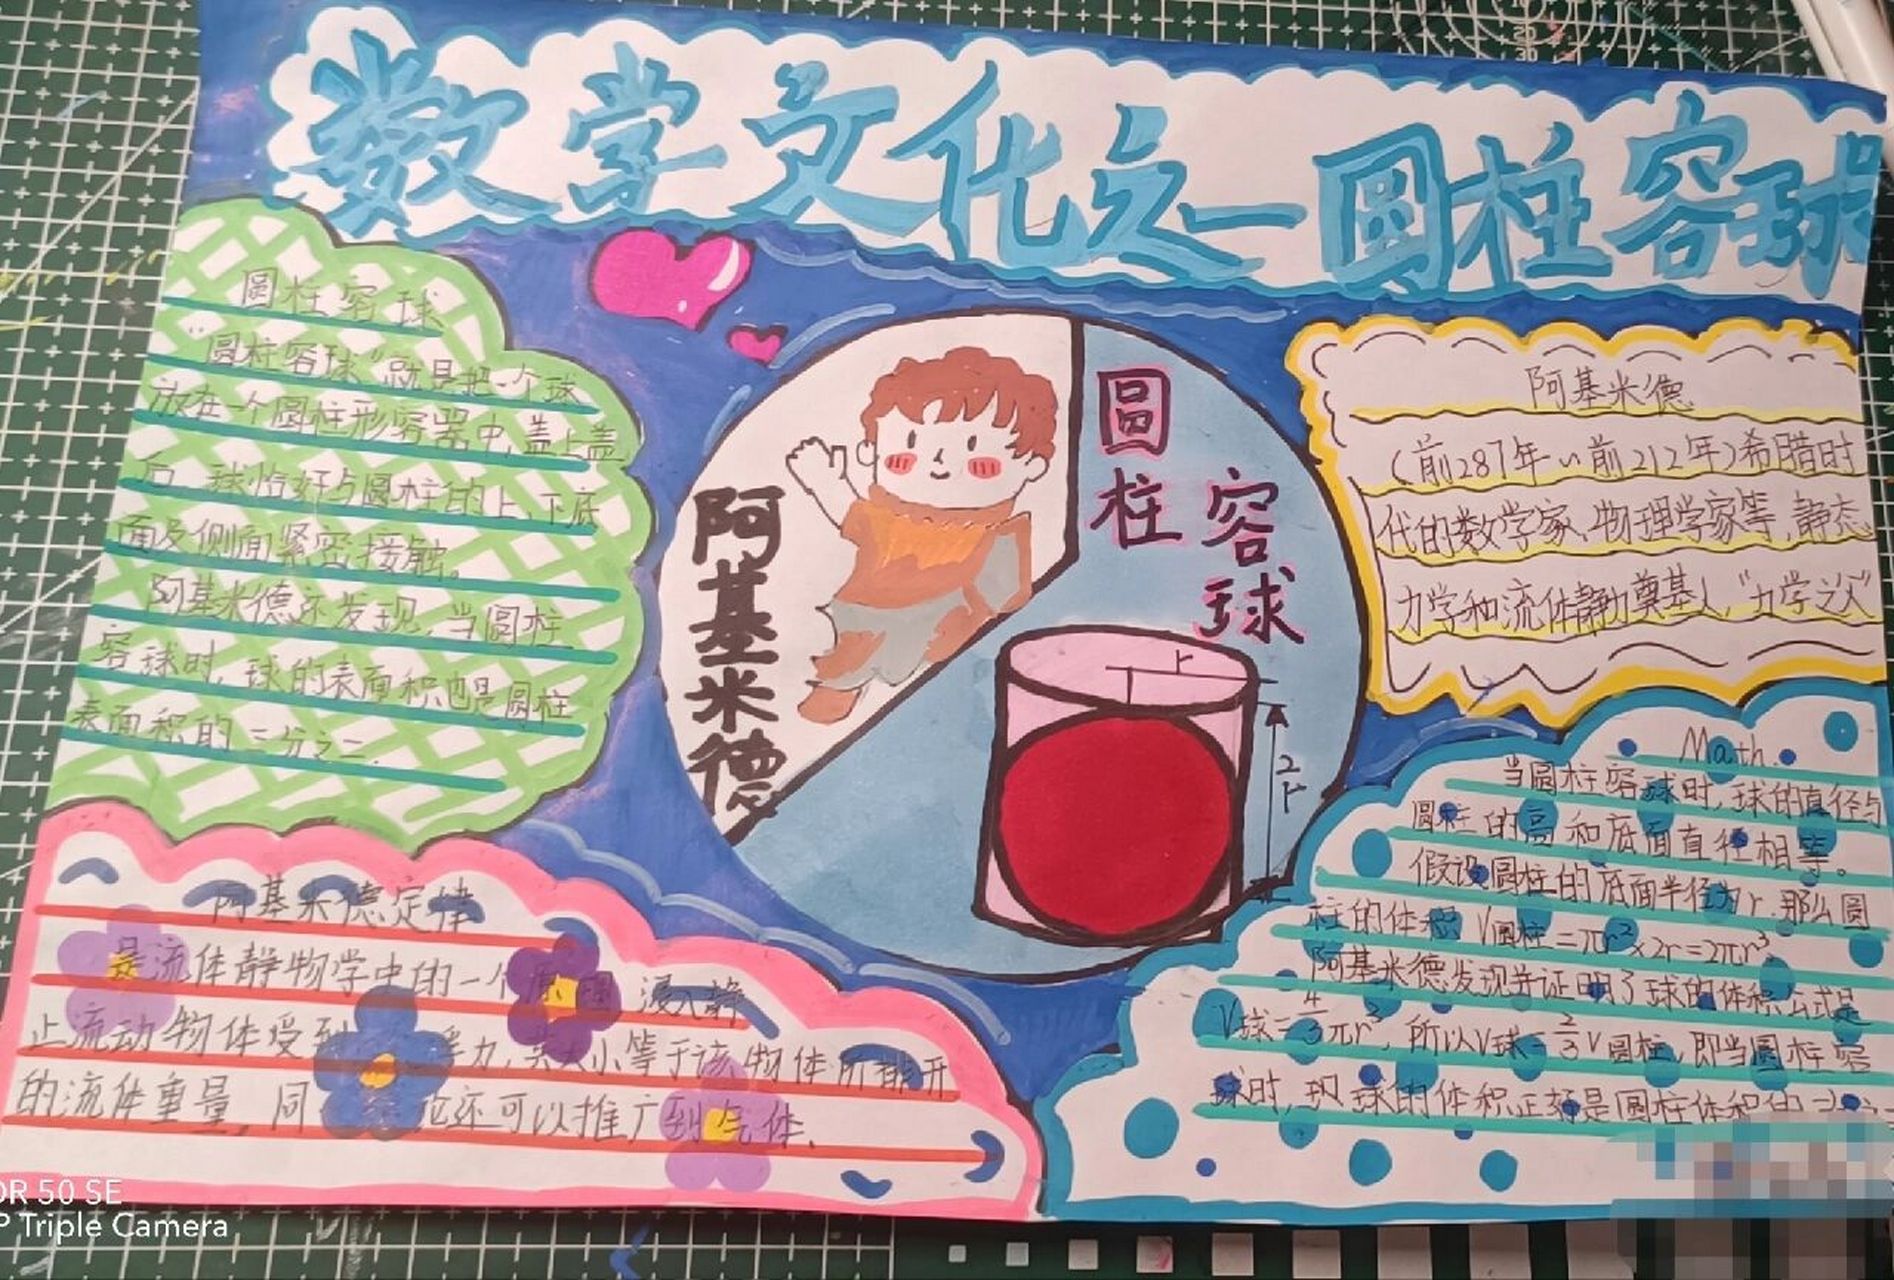 数学文化之一圆柱容球
圆柱容球
圆柱容球"就是把一个球
放在一个圆柱形容器中,盖上盖
后,球恰好与圆柱的上、下底
面及侧面紧密接触。
阿基米德还发现,当圆柱
容球时,球的表面积也是圆柱
表面积的三分之二.
阿基米德
圆柱
容球
r
2r
阿基米德
(前287年~前212年)希腊时
代的数学家、物理学家等,静态
力学和流体静力奠基人,"力学之父"
Math.
当圆柱容球时,球的直径与
圆柱的高和底面直径相等。
假设圆柱的底面半径为r,那么圆
柱的体积V圆柱=πr²×2r=2πr³,
阿基米德发现并证明了球的体积公式是
V球=4/3πr³,所以V球=2/3V圆柱,即当圆柱容
球时,球的体积正好是圆柱体积的
阿基米德定律
是流体静物学中的一个 浸入静
止流动物体受到 浮力,其大小等于该物体所排开
的流体重量,同 论还可以推广到气体、
OR 50 SE
P Triple Camera